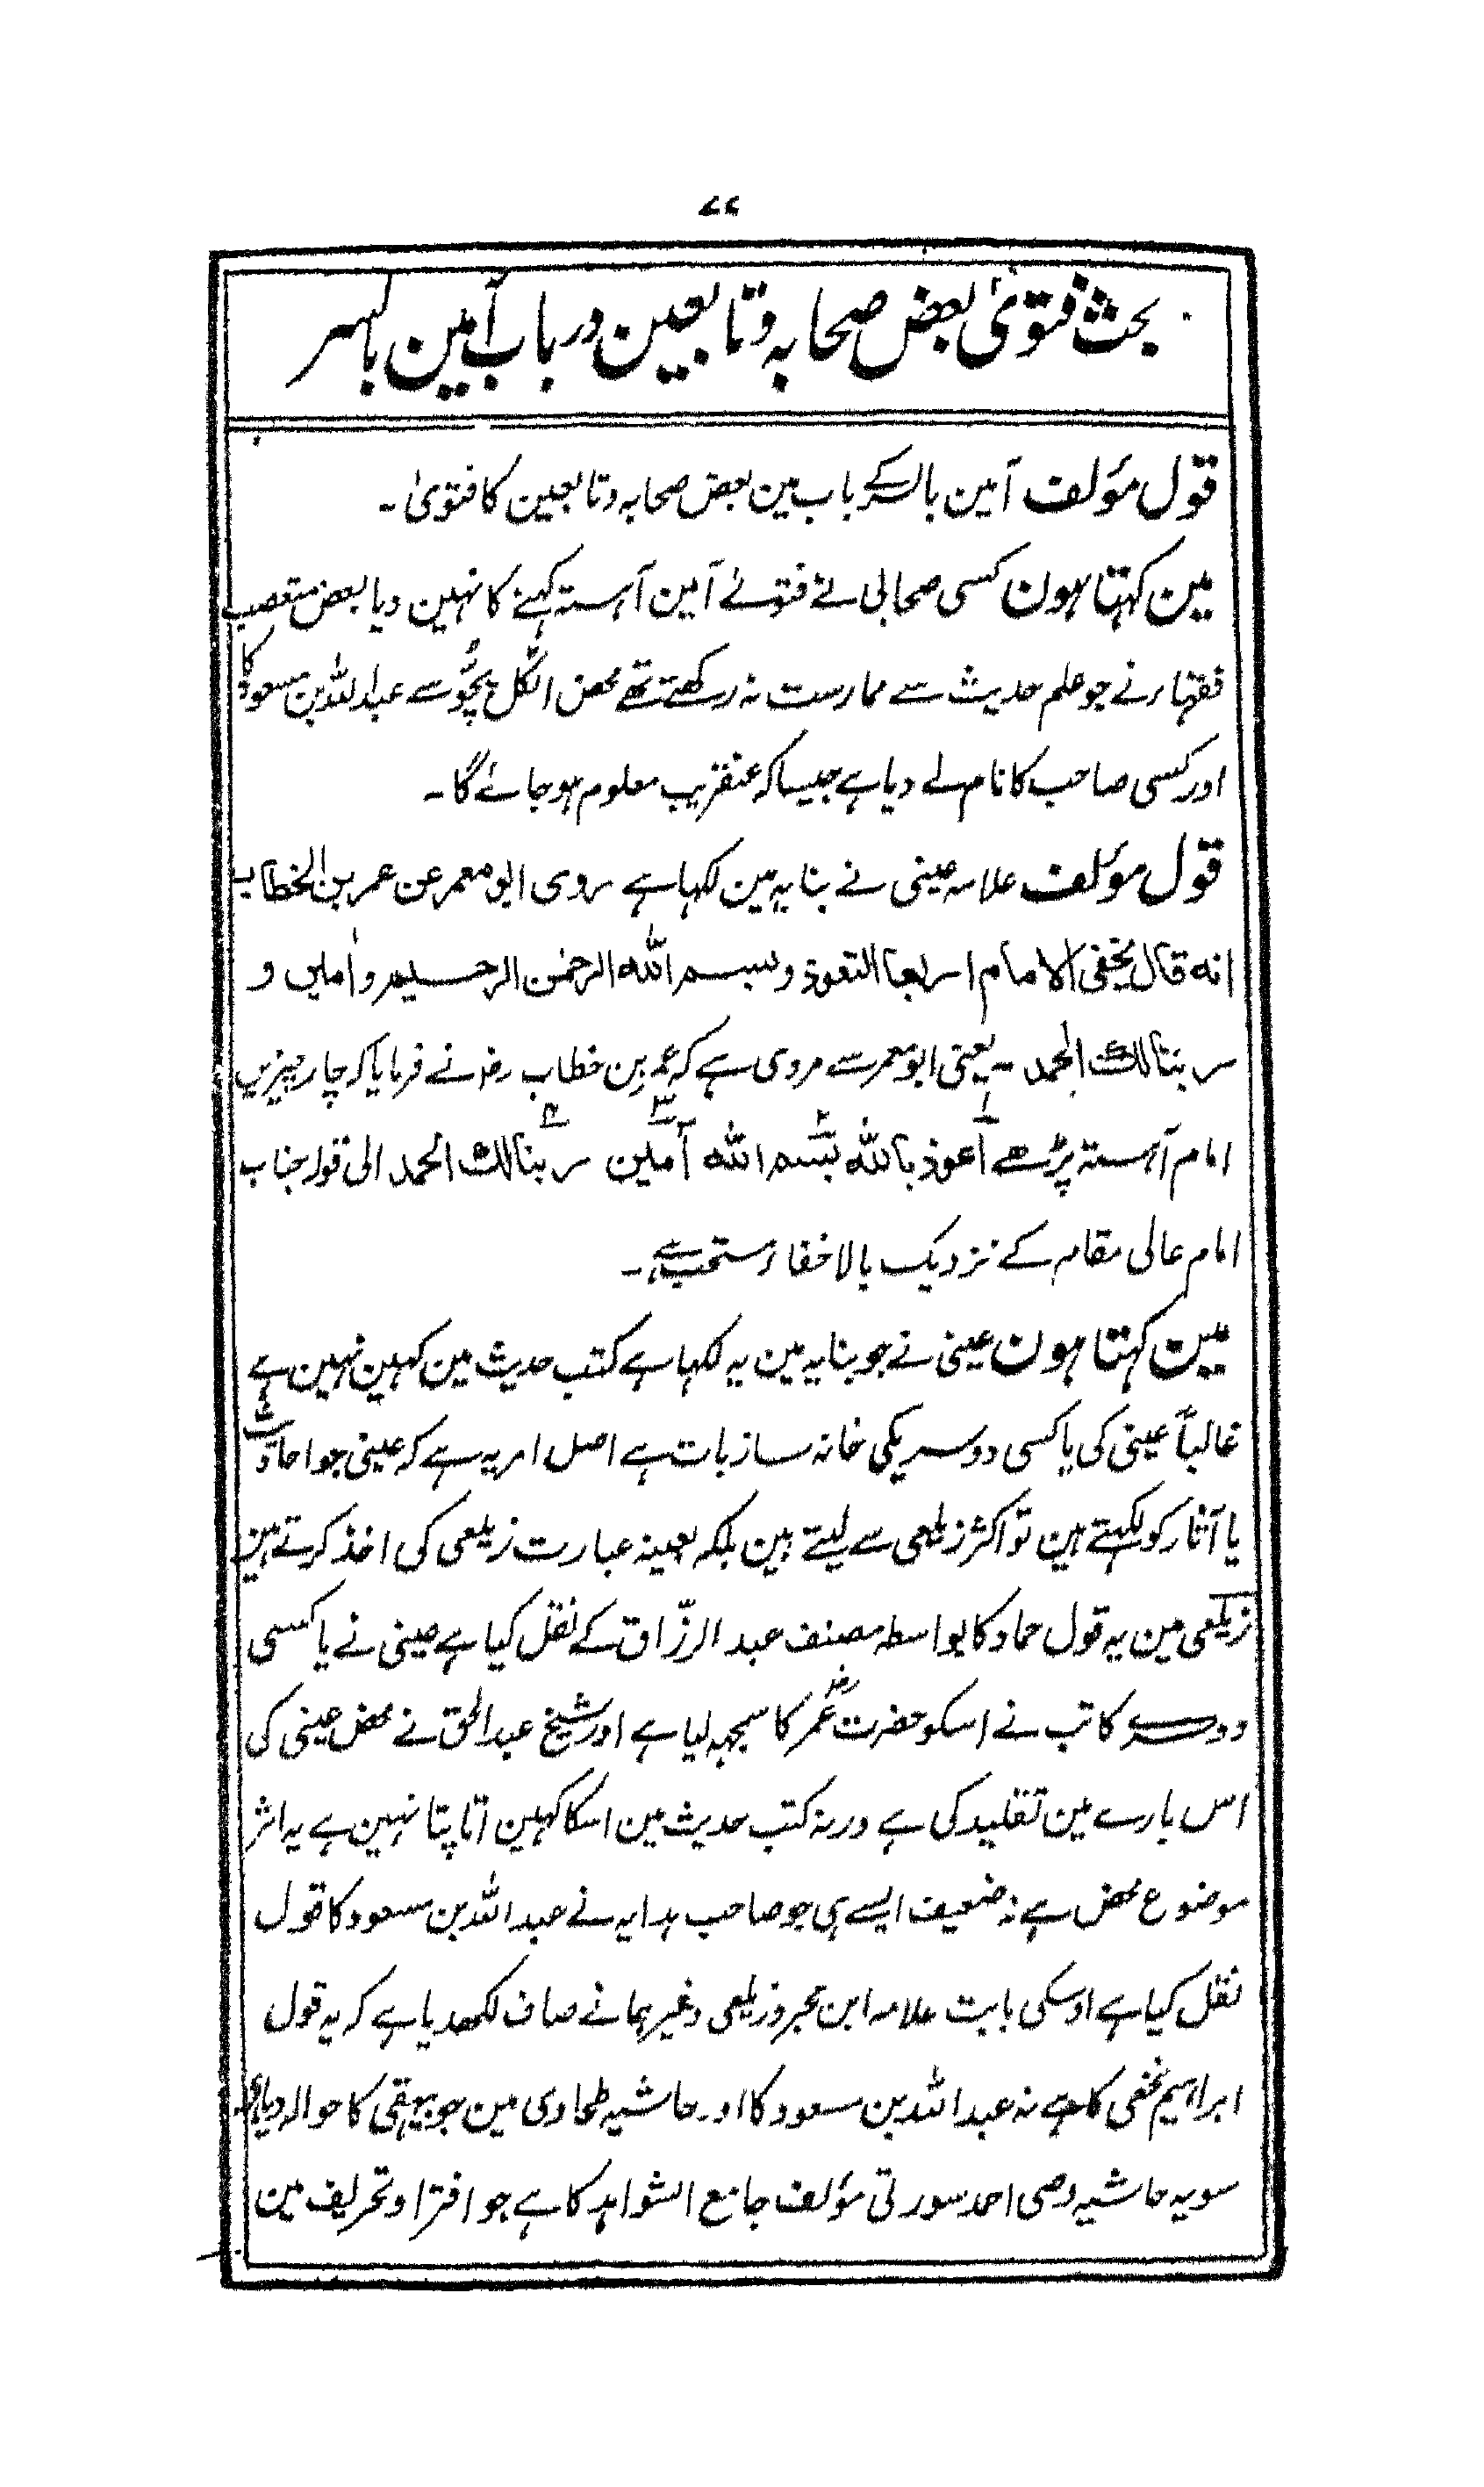 ۷۷
بحث فتویٰ بعض صحابہ و تابعین در باب آمین بالسر
قول مؤلف آمین بالسر کے باب مین بعض صحابہ و تابعین کا فتویٰ ۔
مین کہتا ہون کسی صحابی نے فتوے آمین آہستہ کہنے کا نہین دیا بعض متعصب
فقہاء نے جو علم حدیث سے ممارست نہ رکھتے تھے محض اٹکل پچّو سے عبداللہ بن مسعود کا
اور کسی صاحب کا نام لے دیا ہے جیسا کہ عنقریب معلوم ہو جائے گا ۔
قول مؤلف علامہ عینی نے بنایہ مین لکہا ہے روی ابو معمر عن عمر بن الخطاب
انہ قال یخفی الامام اربعا التعوذ وبسم اللہ الرحمٰن الرحیم واٰمین و
ربنا لک الحمد ۔ یعنی ابو معمر سے مروی ہے کہ عمر بن خطاب رضہ نے فرمایا کہ چار چیزیں
امام آہستہ پڑھے ۱ اعوذ باللہ ۲ بسم اللہ ۳ آمین ۴ ربنا لک الحمد الی قولہ جناب
امام عالی مقام کے نزدیک بالاخفاء مستحب ہے ۔
مین کہتا ہون عینی نے جو بنایہ مین یہ لکہا ہے کتب حدیث مین کہین نہین ہے
غالباً عینی کی یا کسی دوسریکی خانہ ساز بات ہے اصل امر یہ ہے کہ عینی جو احادیث
یا آثار کو لکہتے ہین تو اکثر زیلعی سے لیتے ہین بلکہ بعینہ عبارت زیلعی کی اخذ کرتے ہین
زیلعی مین یہ قول حماد کا بواسطہ مصنف عبد الرزّاق کے نقل کیا ہے عینی نے یا کسی
دوسرے کاتب نے اسکو حضرت عمرؓ کا سمجہہ لیا ہے اور شیخ عبدالحق نے محض عینی کی
اس بارے مین تقلید کی ہے ورنہ کتب حدیث مین اسکا کہین اتا پتا نہین ہے یہ اثر
موضوع محض ہے نہ ضعیف ایسے ہی جو صاحب ہدایہ نے عبد اللہ بن مسعود کا قول
نقل کیا ہے اوسکی بابت علامہ ابن حجر و زیلعی وغیرہما نے صاف لکھدیا ہے کہ یہ قول
ابراہیم نخعی کا ہے نہ عبد اللہ بن مسعود کا اور حاشیہ طحاوی مین جو بیہقی کا حوالہ دیا ہے
سو یہ حاشیہ وصی احمد سورتی مؤلف جامع الشواہد کا ہے جو افترا و تحریف مین